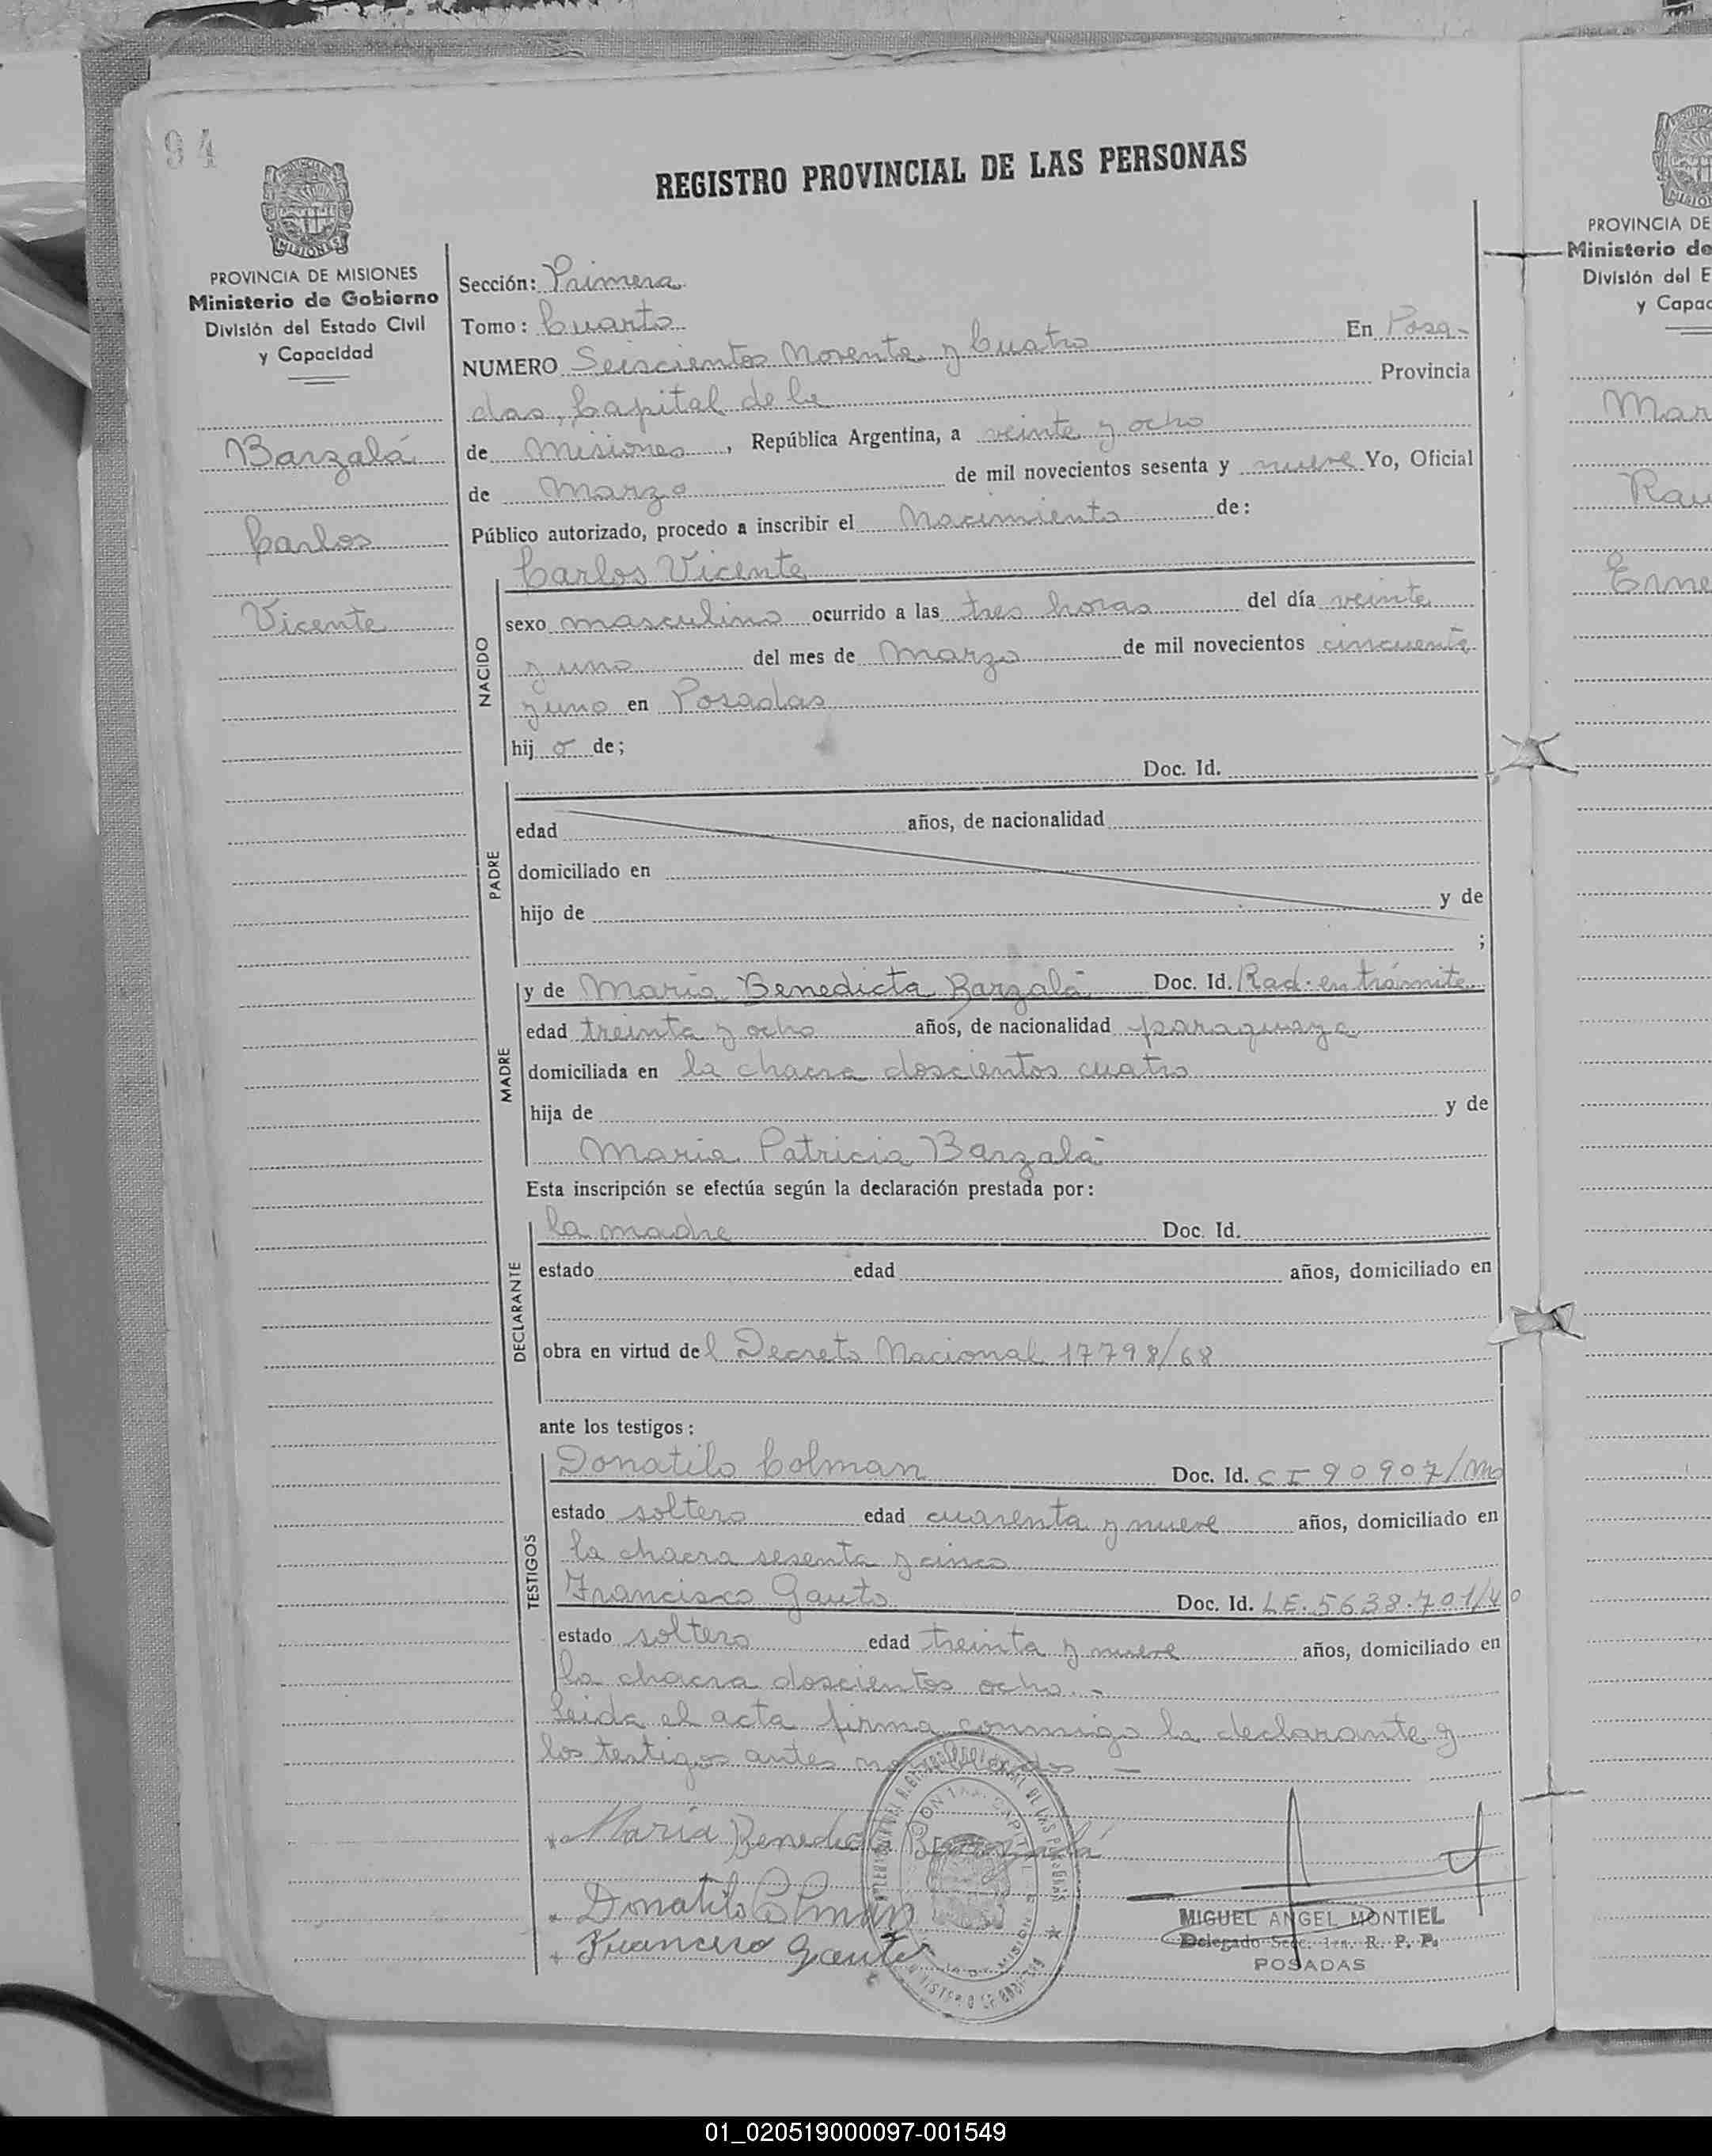 94
REGISTRO PROVINCIAL DE LAS PERSONAS
PROVINCIA DE MISIONES
Ministerio de Gobierno
División del Estado Civil
y Capacidad
Barzalá
Carlos
Vicente
Sección: Primera
Tomo: Cuarto
NUMERO Seiscientos Noventa y Cuatro En Posa-
das, Capital de la Provincia
de Misiones, República Argentina, a veinte y ocho
de Marzo de mil novecientos sesenta y nueve Yo, Oficial
Público autorizado, procedo a inscribir el Nacimiento de:
NACIDO
Carlos Vicente
sexo masculino ocurrido a las tres horas del día veinte
y uno del mes de Marzo de mil novecientos cincuenta
y uno en Posadas
hijo de;
PADRE
Doc. Id.
edad años, de nacionalidad
domiciliado en
hijo de y de
;
MADRE
y de Maria Benedicta Barzalá Doc. Id. Rad. en trámite
edad treinta y ocho años, de nacionalidad paraguaya
domiciliada en la chacra doscientos cuatro
hija de y de
Maria Patricia Barzalá
Esta inscripción se efectúa según la declaración prestada por:
DECLARANTE
la madre Doc. Id.
estado edad años, domiciliado en
obra en virtud del Decreto Nacional 17798/68
ante los testigos:
TESTIGOS
Donatilo Colman Doc. Id. CI 90907/Mo
estado soltero edad cuarenta y nueve años, domiciliado en
la chacra sesenta y cinco
Francisco Gauto Doc. Id. LE. 5638.701/40
estado soltero edad treinta y nueve años, domiciliado en
la chacra doscientos ocho.-
Leida el acta firma conmigo la declarante y
los testigos antes nombrados.-
María Benedicta Barzalá
Donatilo Colman
Francisco Gauto
MIGUEL ANGEL MONTIEL
Delegado Secc. 1ra. R. P. P.
POSADAS
PROVINCIA DE
Ministerio de
División del E
y Capac
Mar
Erne
01_020519000097-001549